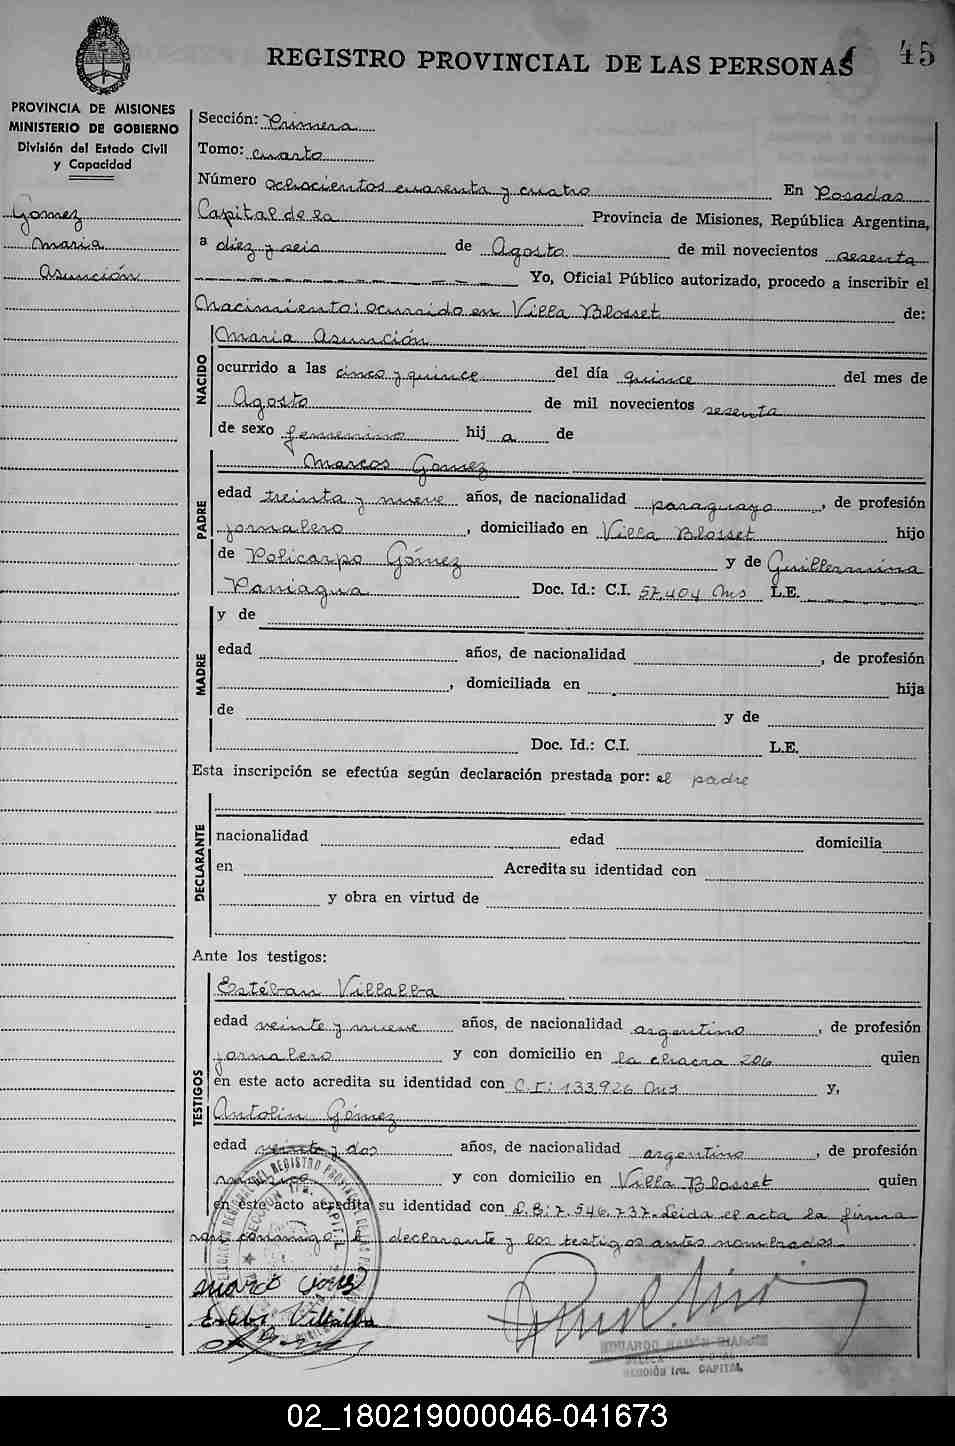 REGISTRO PROVINCIAL DE LAS PERSONAS
45
PROVINCIA DE MISIONES
MINISTERIO DE GOBIERNO
División del Estado Civil
y Capacidad
Gomez
Maria
Asunción
Sección: Primera
Tomo: cuarto
Número ochocientos cuarenta y cuatro En Posadas
Capital de la Provincia de Misiones, República Argentina,
a diez y seis de Agosto de mil novecientos sesenta
Yo, Oficial Público autorizado, procedo a inscribir el
Nacimiento: ocurrido en Villa Blosset de:
NACIDO
Maria Asunción
ocurrido a las cinco y quince del día quince del mes de
Agosto de mil novecientos sesenta
de sexo femenino hij a de
PADRE
Marcos Gomez
edad treinta y nueve años, de nacionalidad paraguayo, de profesión
jornalero, domiciliado en Villa Blosset hijo
de Policarpo Gómez y de Guillermina
Paniagua Doc. Id.: C.I. 57.404 Mns L.E.
MADRE
y de
edad años, de nacionalidad , de profesión
, domiciliada en hija
de y de
Doc. Id.: C.I. L.E.
Esta inscripción se efectúa según declaración prestada por: el padre
DECLARANTE
nacionalidad edad domicilia
en Acredita su identidad con
y obra en virtud de
Ante los testigos:
TESTIGOS
Estéban Villalba
edad veinte y nueve años, de nacionalidad argentino, de profesión
jornalero y con domicilio en la chacra 206 quien
en este acto acredita su identidad con C.I: 133.926 Mns y,
Antolin Gómez
edad veinte y dos años, de nacionalidad argentino, de profesión
y con domicilio en Villa Blosset quien
en este acto acredita su identidad con L.E: 7.546.737. Leida el acta la firma
conmigo el declarante y los testigos antes nombrados.
Marco Gomez
Villalba
EDUARDO RAMÓN
SECCIÓN 1ra. CAPITAL
02_180219000046-041673